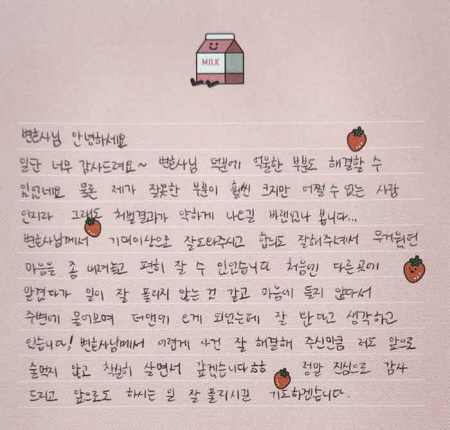 MILK
변호사님 안녕하세요
일단 너무 감사드려요~ 변호사님 덕분에 억울한 부분도 해결할 수
있었네요 물론 제가 잘못한 부분이 훨씬 크지만 어쩔 수 없는 사람
인지라 그래도 처벌결과가 약하게 나오길 바랬었나 봅니다...
변호사님께서 기대이상으로 잘도와주시고 합의도 잘해주셔서 무거웠던
마음을 좀 내려놓고 편히 잘 수 있었습니다 처음엔 다른곳에
맡겼다가 일이 잘 풀리지 않는 것 같고 마음에 들지 않아서
주변에 물어보며 더앤이 오게 되었는데 잘 한다고 생각하고
있습니다! 변호사님께서 이렇게 사건 잘 해결해 주신만큼 저도 앞으로
술먹지 않고 착실히 살면서 갚겠습니다ㅎㅎ 정말 진심으로 감사
드리고 앞으로도 하시는 일 잘 풀리시길 기도하겠습니다.